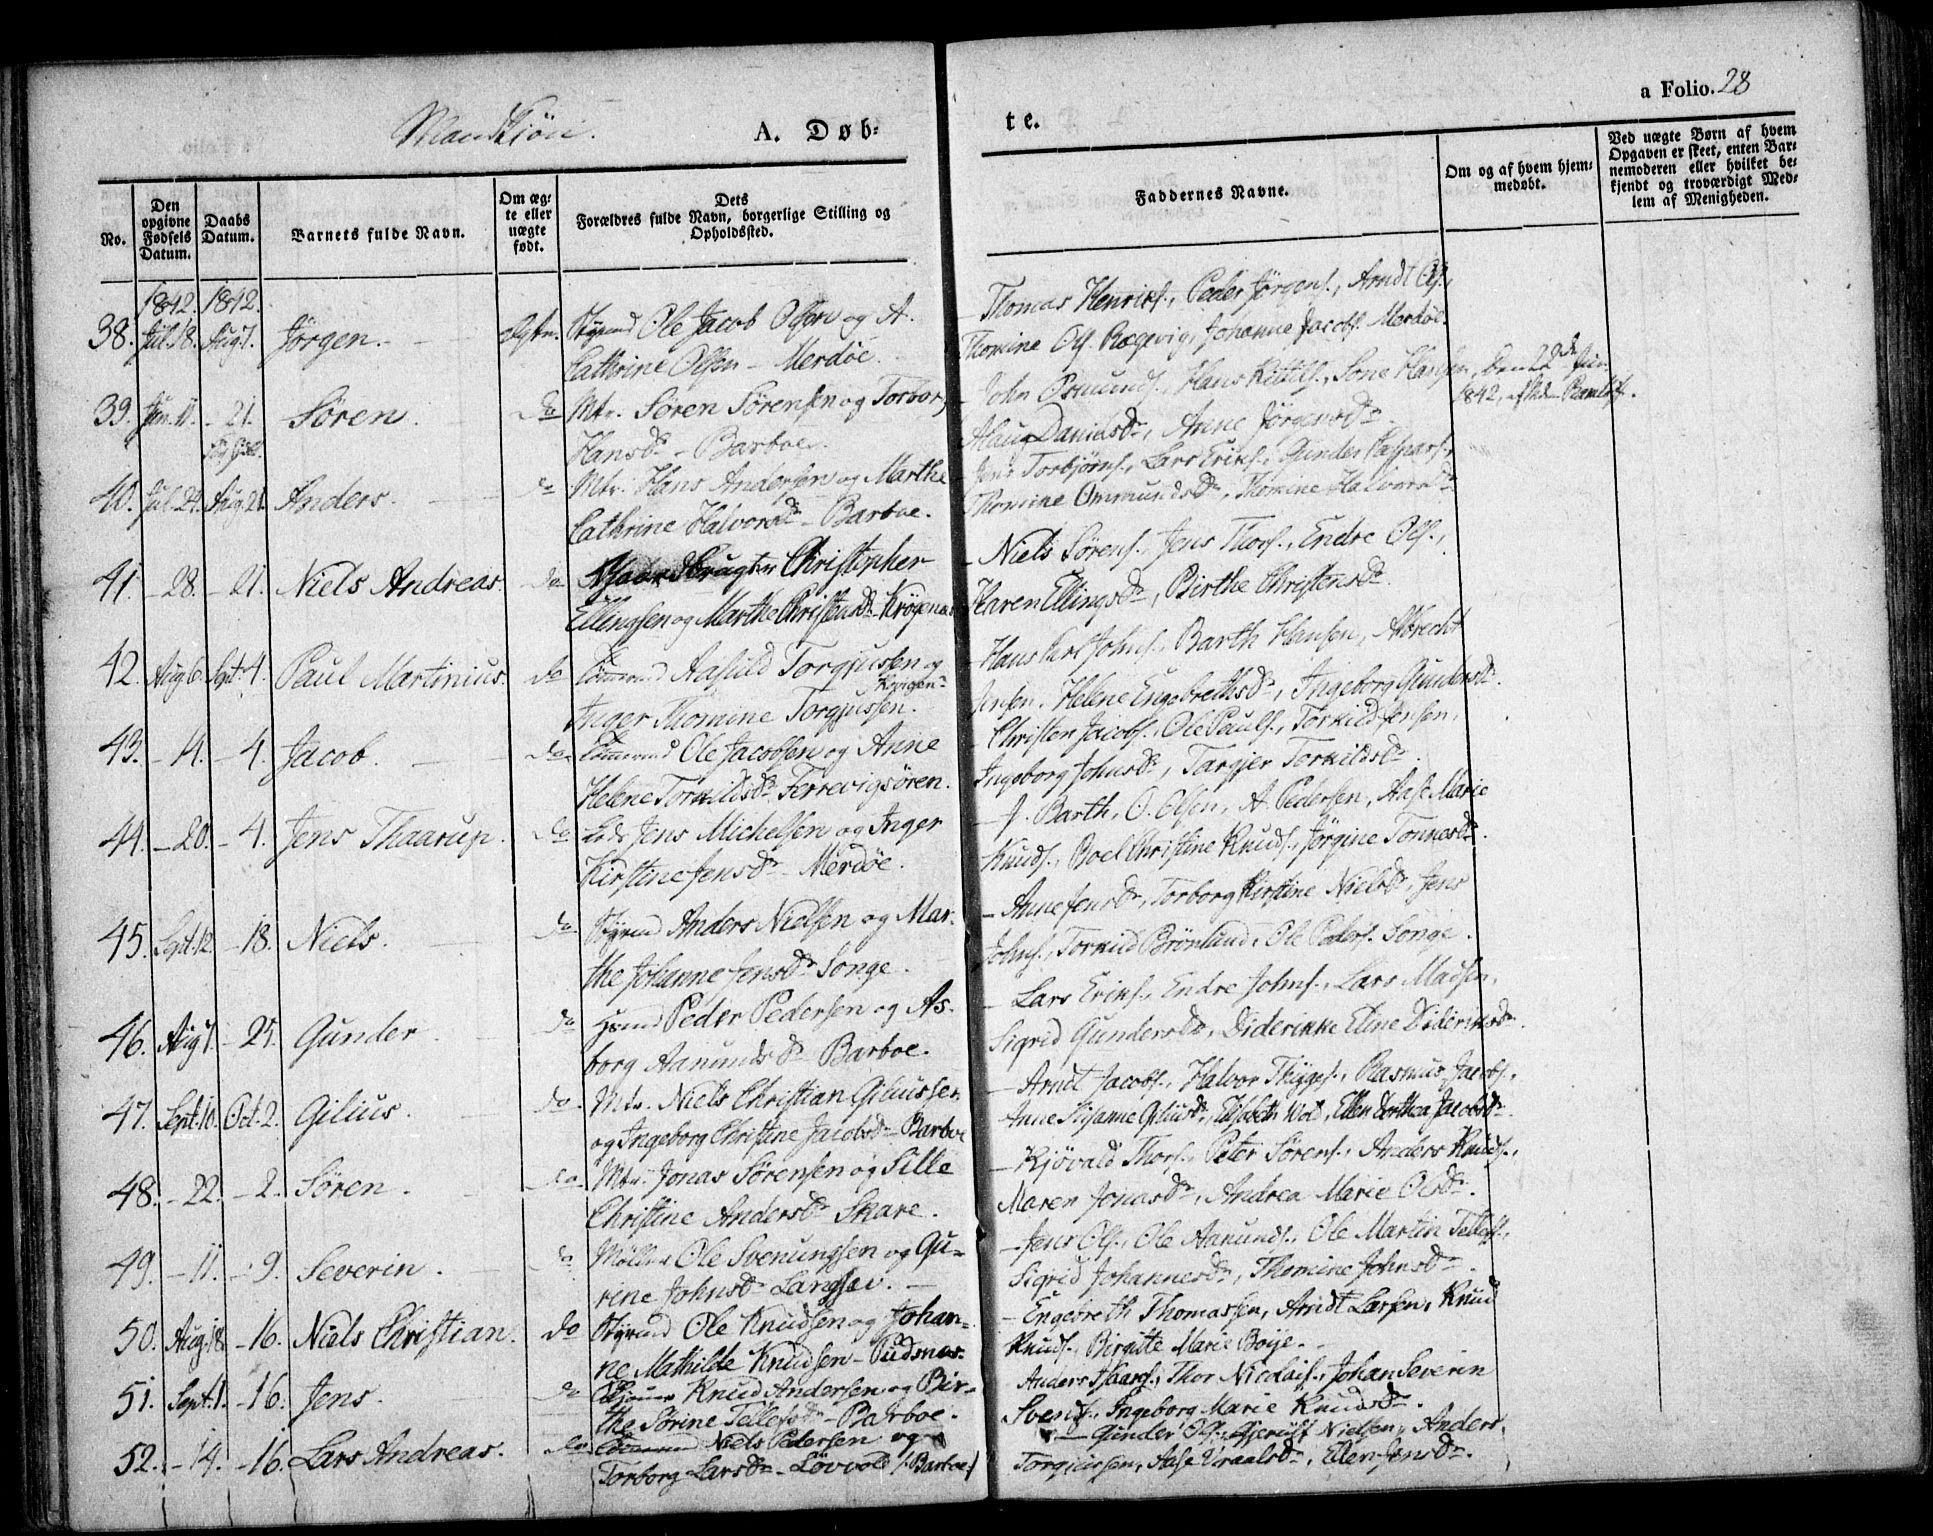 Mandkjøn. A. Døb=
te.
a Folio. 28
No.
Den opgivne Fødsels Datum.
Daabs Datum.
Barnets fulde Navn.
Om æg=te eller uægte født.
Dets Forældres fulde Navn, borgerlige Stilling og Opholdssted.
Faddernes Navne.
Om og af hvem hjem=medøbt.
Ved uægte Børn af hvem Opgaven er skeet, enten Bar=nemoderen eller hvilket be=kjendt og troværdigt Med=lem af Menigheden.
1842. 1842.
38. Jul. 18. Aug 7. Jørgen. Ægte. Styrmd Ole Jacob Olsen og A.
Cathrine Olsen - Merdøe.
Thomas Henriks., Peder Jørgens., Arndt Ols.,
Thomine Ols. Rægevig, Johanne Jacobs. Merdøe.
39. Jun. 11. - 21. Søren. do Mtr. Søren Sørensen og Torbor
Hansdr - Barboe.
John Osmunds., Hans Kittils., Sone Hansen,
Alaug Danielsdr, Anne Jørgensdr
Den 22de Jun. 1842, af
40. Jul. 24. Aug. 21. Anders. do Mtr. Hans Andersen og Marthe
Cathrine Halvorsdr - Barboe.
Jens Torbjørns., Lars Eriks., Gunder Caspars.,
Thomine Ommundsdr, Thomine Halvorsdr
41. - 28. - 21. Niels Andreas. do Christopher
Ellingsen og Marthe Christensdr Krøgenæs
- Niels Sørens., Jens Thors., Endre Ols.,
Karen Ellingsdr, Birthe Christensdr.
42. Aug 6. Sept. 4. Paul Martinius. do Aasuld Torgjussen og
Inger Thomine Torgjussen.
- Hans Carl Johns., Barth Hansen, Albrecht
Jensen, Helene Engebrethsdr, Ingeborg Gundersdr.
43. - 14. - 4. Jacob. do Ole Jacobsen og Anne
Helene Torkildsdr Ferrevigsøren.
- Christen Jacobs., Ole Pauls., Torkild Jensen,
Ingeborg Johnsdr, Targjer Torkildsdr.
44. - 20. - 4. Jens Thaarup. do Jens Michelsen og Inger
Kirstine Jensdr - Merdøe.
- J. Barth, O. Olsen, A. Pedersen, Aase Marie
Knuds., Boel Christine Knuds., Jørgine Tønnesdr.
45. Sept. 12. - 18. Niels. do Styrmd Anders Nielsen og Mar=
the Johanne Jensdr Songe.
- Anne Jensdr, Torborg Kirstine Nielsdr, Jens
Johns., Torkild Brønlund, Ole Peders. Songe.
46. Aug 7. - 25. Gunder. do Husmd Peder Pedersen og As=
borg Aanundsdr Barboe.
- Lars Eriks., Endre Johns., Lars Madsen,
Sigrid Gundersdr, Diderikke Eline Dideriksdr.
47. Sept. 10. Oct. 2. Gilius. do. Mtr. Niels Christian Giliussen
og Ingeborg Christine Jacobsdr - Barboe
- Arndt Jacobs., Halvor Thygges., Rasmus Jacobs.,
Anne Susanne Giliusdr, Elisabeth Wold, Ellen Dorthea Jacobsdr
48. - 22. - 2. Søren. do. Mtr. Jonas Sørensen og Sille
Christine Andersdr Skare.
- Kjøvald Thors., Peter Sørens., Anders Knuds.,
Maren Jonasdr, Andrea Marie Olsdr.
49. - 11. - 9. Severin. do Møller Ole Svenungsen og Gu=
rine Johnsdr Langsæv. -
- Jens Ols., Ole Aanunds., Ole Martin Tellefs.,
Sigrid Johannesdr, Thomine Johnsdr.
50. Aug. 18. - 16. Niels Christian. do Styrmd Ole Knudsen og Johan=
ne Mathilde Knudsen - Pudsnæs.
- Engebreth Thomassen, Arndt Larsen, Knud
Knuds., Birgitte Marie Boije. -
51. Sept. 1. - 16. Jens. do Knud Andersen og Bir=
the Sørine Tellefsdr - Barboe.
Anders Thaars., Thor Nicolais., Johan Severin
Svends., Ingeborg Marie Knudsdr.
52. - 14. - 16. Lars Andreas. do Niels Pedersen og
Torborg Larsdr - Løvvold (Barboe)
- Gunder Ols., Gjeruld Nielsen, Anders
Torgiussen, Aase Vraalsdr, Ellen Jensdr.